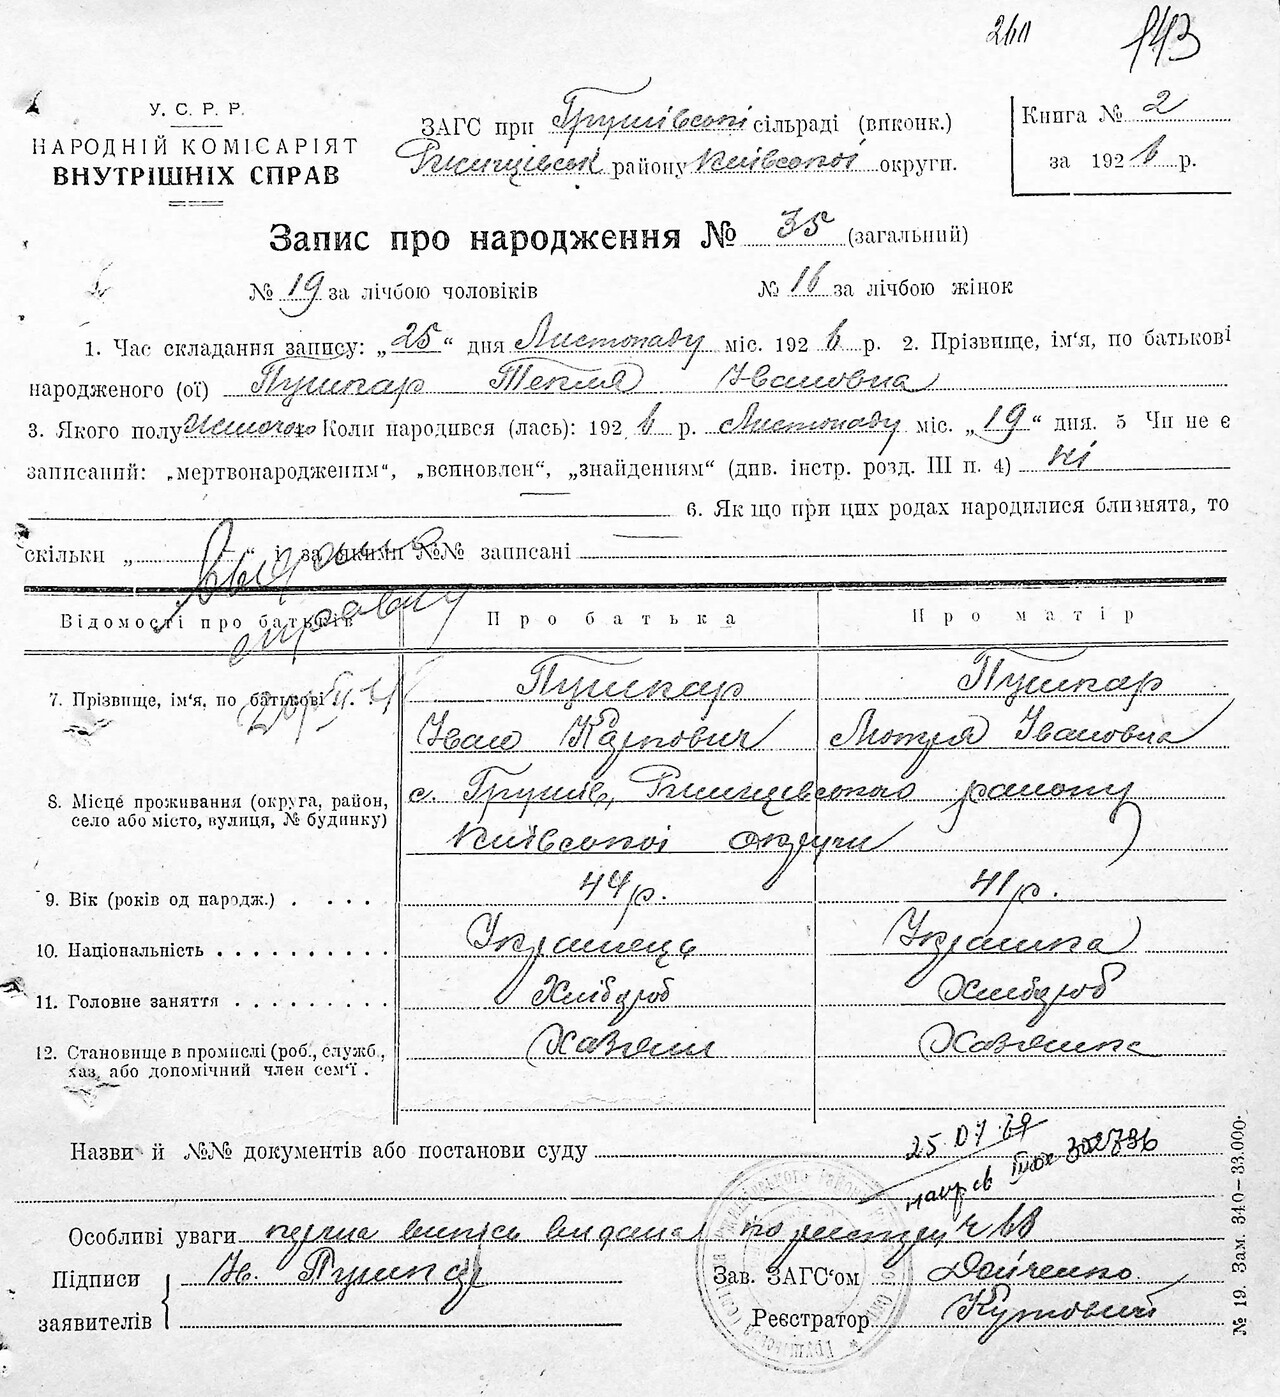 260 143
У. С. Р. Р.
НАРОДНІЙ КОМІСАРІЯТ
ВНУТРІШНІХ СПРАВ
ЗАГС при Грушівські сільраді (виконк.)
Ржищівськ району Київської округи.
Книга № 2
за 1926 р.
Запис про народження № 35 (загальний)
№ 19 за лічбою чоловіків № 16 за лічбою жінок
1. Час складання запису: „25“ дня Листопаду міс. 1926 р. 2. Прізвище, ім'я, по батькові
народженого (ої) Пушкар Текля Івановна
3. Якого полу жіночого Коли народився (лась): 1926 р. Листопаду міс. „19“ дня. 5 Чи не є
записаний: „мертвонародженим“, „всиновлен“, „знайденням“ (див. інстр. розд. III п. 4) ні
6. Як що при цих родах народилися близнята, то
скільки „ “ і за якими №№ записані
Відомості про батьків Про батька Про матір
7. Прізвище, ім'я, по батькові Пушкар Пушкар
Іван Карпович Мотря Івановна
8. Місце проживання (округа, район,
село або місто, вулиця, № будинку)
с. Грушів, Ржищевського району
Київської округи
9. Вік (років од народж.) . . . . 44 р. 41 р.
10. Національність . . . . . . . . . . Українець Українка
11. Головне заняття . . . . . . . . . Хлібороб Хлібороб
12. Становище в промислі (роб., служб.,
хаз. або допомічний член сем'ї .
Хазяїн Хазяйка
Назви й №№ документів або постанови суду
25.07.69
302736
Особливі уваги перша випись видана по реєстру ч
Підписи
заявителів
Ів. Пушкар
Зав. ЗАГС'ом Дойченко
Реєстратор Кутовий
№ 19. Зам. 340—33.000.